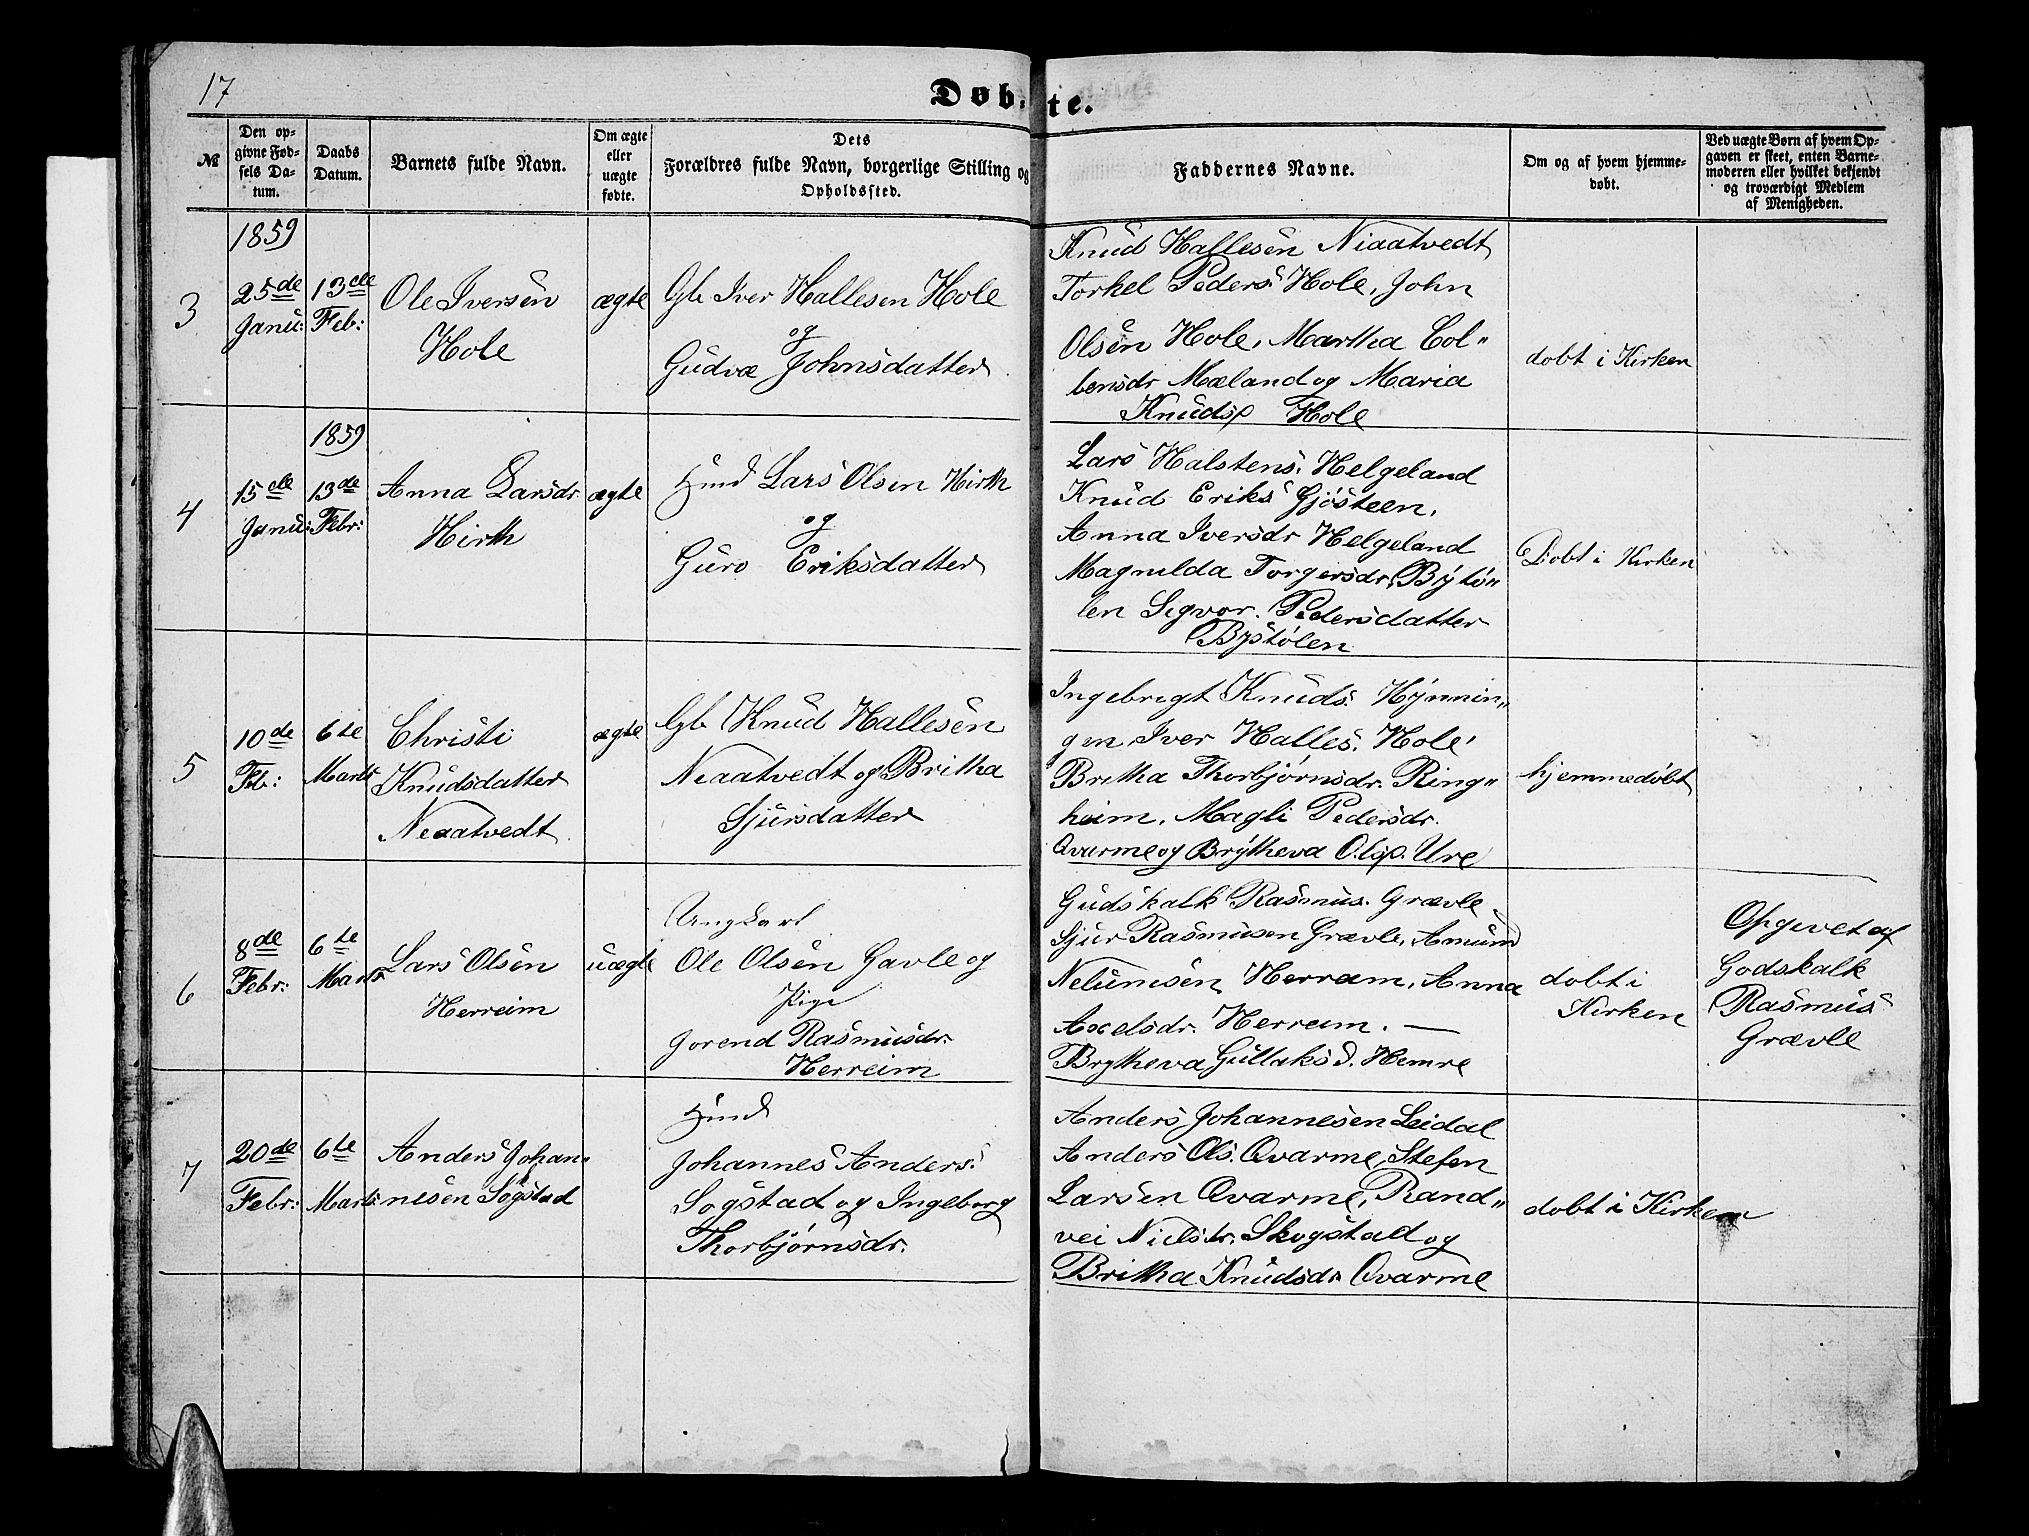 17
Døbte.
№
Den op-
givne Fød-
sels Da-
tum.
Daabs
Datum.
Barnets fulde Navn.
Om ægte
eller
uægte
fødte.
Dets
Forældres fulde Navn, borgerlige Stilling og
Opholdssted.
Faddernes Navne.
Om og af hvem hjemme-
døbt.
Ved uægte Børn af hvem Op-
gaven er skeet, enten Barne-
moderen eller hvilket bekjendt
og troværdigt Medlem
af Menigheden.
3
1859
25de
Janu:
13de
Feb:
Ole Iversen
Hole
ægte
Gb Iver Hallesen Hole
og
Gudvæ Johnsdatter
Knud Hallesen Niaatvedt
Torkel Peders: Hole, John
Olsen Hole, Martha Col„
bensdr Mæland og Maria
Knuds Hole
dobt i Kirken
4
15de
Janu:
1859
13de
Febr:
Anna Larsdr
Hirth
ægte
Hmd Lars Olsen Hirth
og
Guro Eriksdatter
Lars Halstens: Helgeland
Knud Eriks Gjösteen,
Anna Iversdr Helgeland
Magnilda Torgersdr Bystö„
len Sigvor Pedersdatter
Bystölen
Dobt i Kirken
5
10de
Feb:
6te
Marts
Christi
Knudsdatter
Neaatvedt
ægte
Gb Knud Hallesen
Neaatvedt og Britha
Sjursdatter
Ingebrigt Knuds: Hÿnnin„
gen, Iver Halles: Hole,
Britha Thorbjörnsdr. Ring„
heim, Magli Pedersdr.
Qvarme og Brÿtheva Ols Ure
hjemmedöbt
6
8de
Febr:
6te
Marts
Lars Olsen
Herreim
uægte
Ungkarl
Ole Olsen Gavle og
Pige
Gorend Rasmusdr.
Herreim
Gudskalk Rasmus. Grævle
Sjur Rasmusen Grævle, Amund
Herream, Anna
Axelsdr. Herream. —
Brytheva Gullaksd. Hemre
dobt i
Kirken
Opgevet af
Godskalk
Rasmus
Grævle
7
20de
Febr:
6te
Marts
Anders Johan„
nesen Sogstad
Hmd
Johannes Anders:
Sogstad og Ingeborg
Thorbjörnsdr.
Anders Johannesen Leidal
Anders Ols. Qvarme, Stefen
Larsen Qvarme, Rand„
vei Nielsdr. Skogstad og
Britha Knudsdr Qvarme
dobt i Kirken